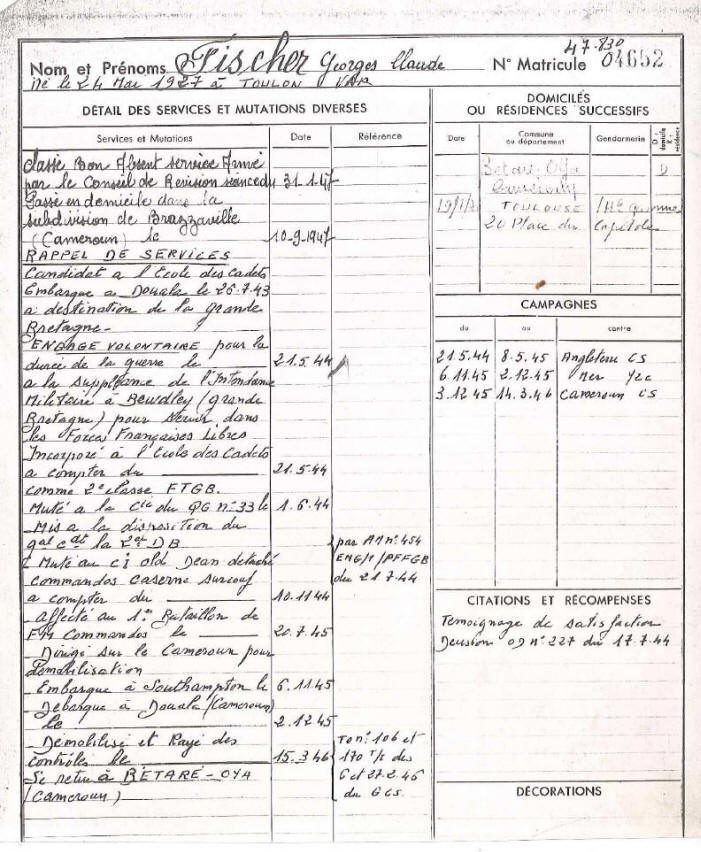 47-830
Nom et Prénoms Fischer Georges Claude N° Matricule 04652
Né le 24 Mai 1927 à TOULON VAR
DÉTAIL DES SERVICES ET MUTATIONS DIVERSES
Services et Mutations Date Référence
Classe Bon Absent service Armé
par le Conseil de Revision séance du 31.1.47
Passe en domicile dans la
subdivision de Brazzaville
(Cameroun) le 10-9-1947
RAPPEL DE SERVICES
Candidat a l'Ecole des Cadets
Embarque a Douala le 26.7.43
a destination de la grande
Bretagne-
ENGAGE VOLONTAIRE pour la
durée de la guerre le 21.5.44
a la suppléance de l'Intendance
Militaire à Bewdley (grande
Bretagne) pour servir dans
les Forces Françaises Libres
Incorporé à l'Ecole des Cadets
a compter du 21.5.44
comme 2e classe FTGB.
Muté a la Cie du QG n°33 le 1.6.44
Mis a la disposition du
gal cdt la 2e DB
Muté au ci old Dean detaché
Commandos Caserne Surcouf
a compter du 10.11.44
par AM n° 454
EMG/1/PFFGB
du 21 7.44
affecté au 1er Bataillon de
FM Commandos le 20.7.45
Dirigé sur le Cameroun pour
demobilisation
Embarque à Southampton le 6.11.45
Debarque à Douala (Cameroun)
le 2.12.45
Demobilisé et Rayé des
controles le 15.3.46
Se retire à BÉTARÉ-OYA
(Cameroun)
To n° 106 et
170 T/s des
6 et 27.2.46
du GCS.
DOMICILES
OU RÉSIDENCES SUCCESSIFS
Date Commune ou département Gendarmerie D : domicile R : résidence
Betare Oya D
Cameroun
TOULOUSE
20 Place du Capitole
CAMPAGNES
du au contre
21.5.44 8.5.45 Angleterre CS
6.11.45 2.12.45 Mer 1/2c
3.12.45 14.3.46 Cameroun CS
CITATIONS ET RÉCOMPENSES
Temoignage de satisfaction
Decision OD n° 227 du 17.7.44
DÉCORATIONS